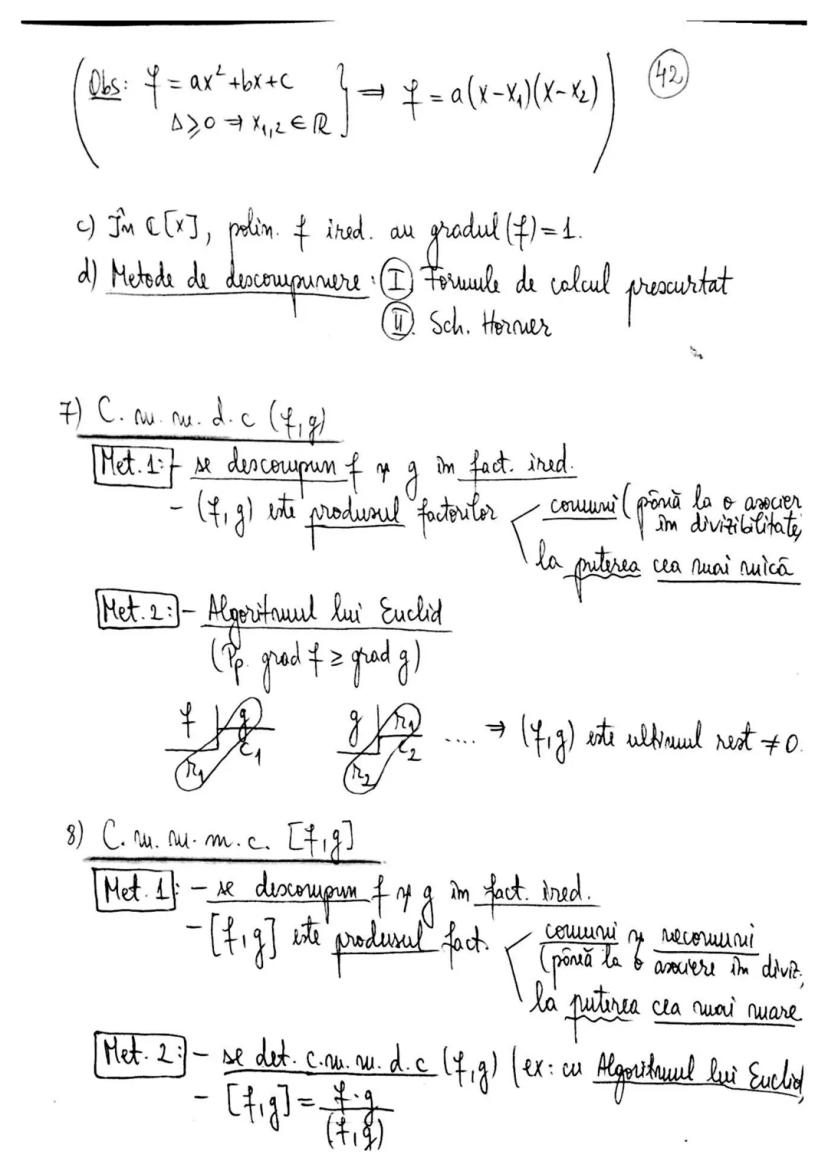 (Obs: f = ax² + bx + c } ⇒ f = a(x - x₁)(x - x₂)) 42
Δ ≥ 0 ⇒ x₁,₂ ∈ ℝ
c) În ℂ[x], polin. f ired. au gradul (f) = 1.
d) Metode de descompunere: I Formule de calcul prescurtat
II. Sch. Horner
7) C. m. m. d. c (f, g)
Met. 1: - se descompun f și g în fact. ired.
- (f, g) este produsul factorilor comuni (până la o asocier
în divizibilitate)
la puterea cea mai mică
Met. 2: - Algoritmul lui Euclid
(Pp. grad f ≥ grad g)
f | g g | r₁ .... ⇒ (f, g) este ultimul rest ≠ 0.
c₁ c₂
r₁ r₂
8) C. m. m. m. c. [f, g]
Met. 1: - se descompun f și g în fact. ired.
- [f, g] este produsul fact. comuni și necomuni
(până la o asociere în diviz.
la puterea cea mai mare
Met. 2: - se det. c.m.m.d.c (f, g) (ex: cu Algoritmul lui Euclid)
- [f, g] = f · g / (f, g)